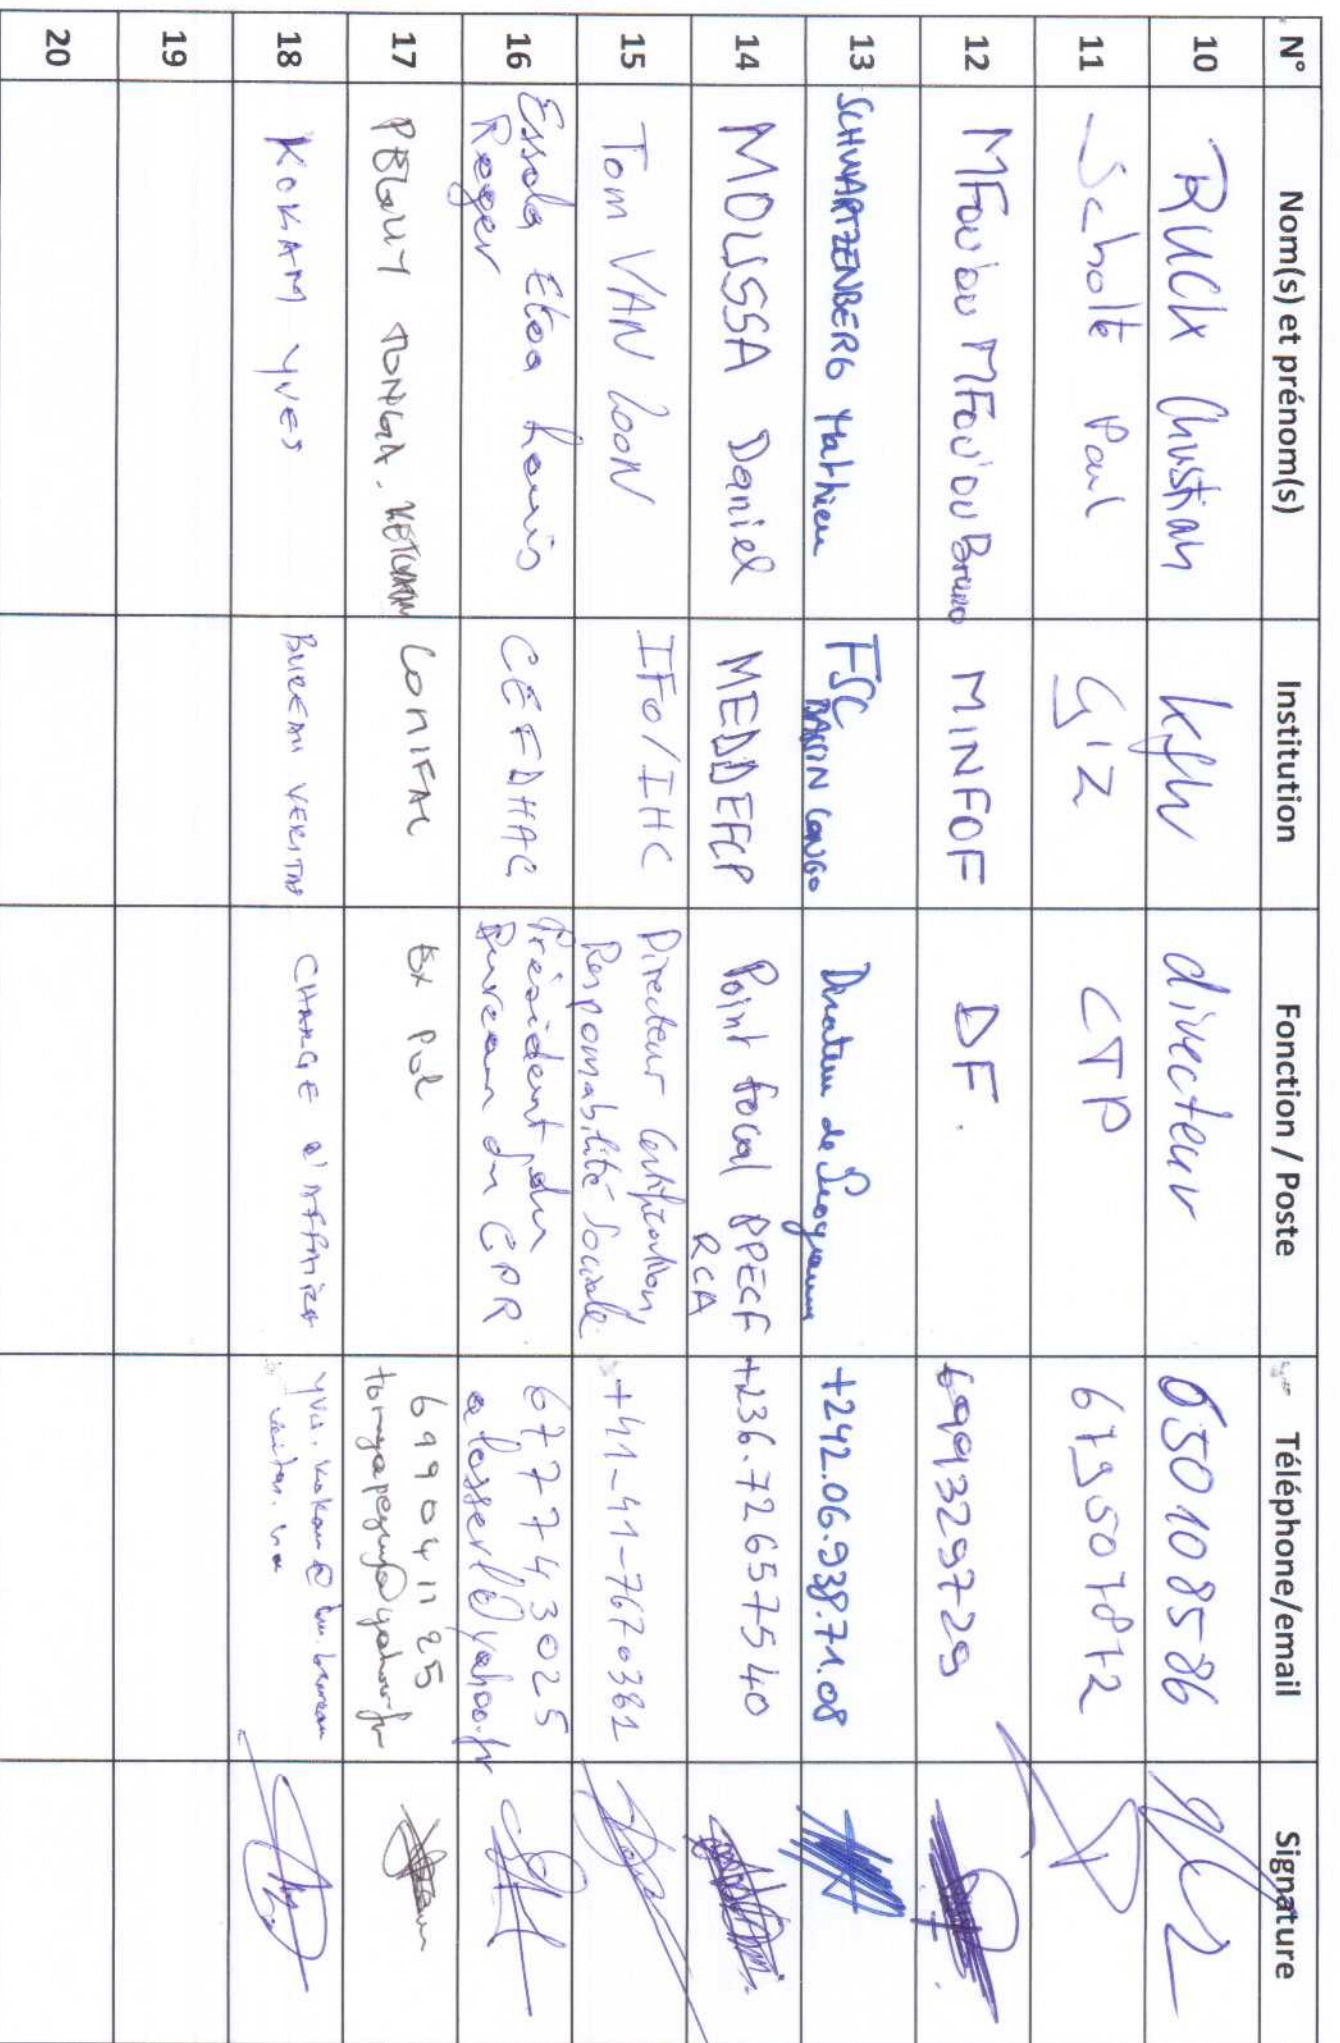 N° Nom(s) et prénom(s) Institution Fonction / Poste Téléphone/email Signature
10 RUCK Christian KfW directeur 650108586
11 Scholte Paul GIZ CTP 679507872
12 MFOU'OU MFOU'OU Bruno MINFOF DF. 699329729
13 SCHWARTZENBERG Mathieu FSC BASSIN CONGO Directeur de Programme +242.06.938.71.08
14 MOUSSA Daniel MEDDEFCP Point focal PPECF RCA +236.72657540
15 Tom VAN LOON IFO/IHC Directeur Certification, Responsabilité Sociale +41-41-7670381
16 Essola Etoa Louis Roger CEFDHAC Président du Bureau du GPR 677743025
alosserl@yahoo.fr
17 PEGUY TONGA COMIFAC Ex Pol 699041125
tongapeguy@yahoo.fr
18 KOKAM YVES BUREAU VERITAS CHARGE D'AFFAIRES
19
20